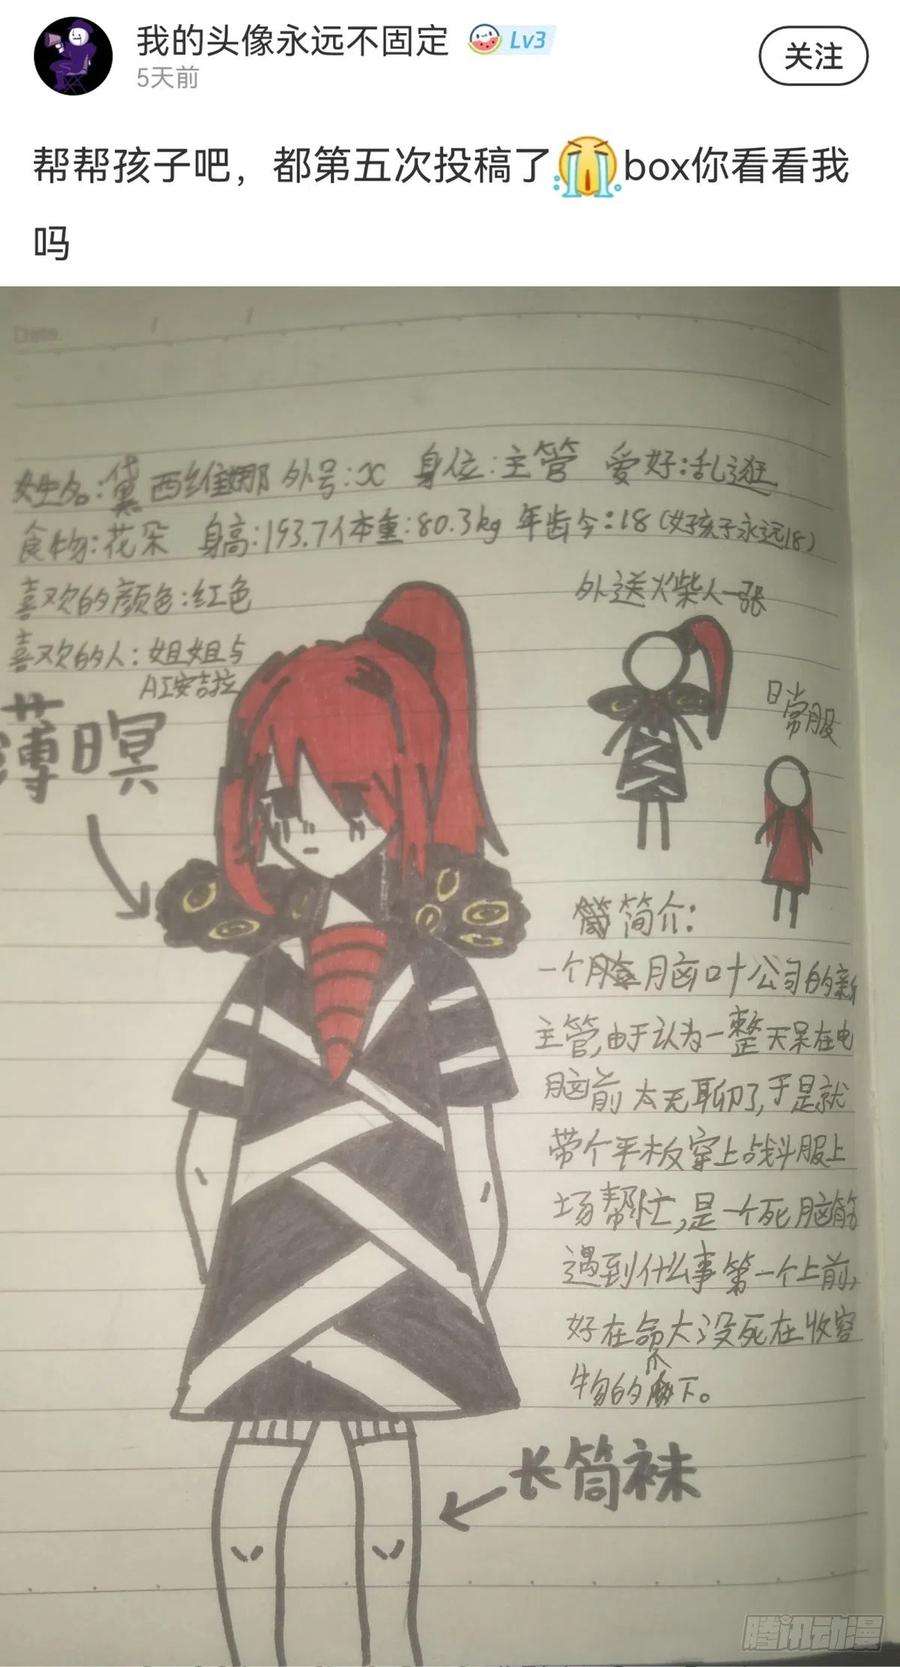 我的头像永远不固定 Lv3
关注
5天前
帮帮孩子吧，都第五次投稿了😭box你看看我
吗
Date.
姓名:黛西维娜 外号:X 身位:主管 爱好:乱逛
食物:花朵 身高:193.7 体重:80.3kg 年龄今:18(女孩子永远18)
喜欢的颜色:红色
外送火柴人一张
喜欢的人:姐姐与
AI安吉拉
日常服
薄暝
简介:
一个脑叶公司的新
主管,由于认为一整天呆在电
脑前太无聊了,于是就
带个平板穿上战斗服上
场帮忙,是一个死脑筋
遇到什么事第一个上前,
好在命大没死在收容
物的爪下。
长筒袜
腾讯动漫